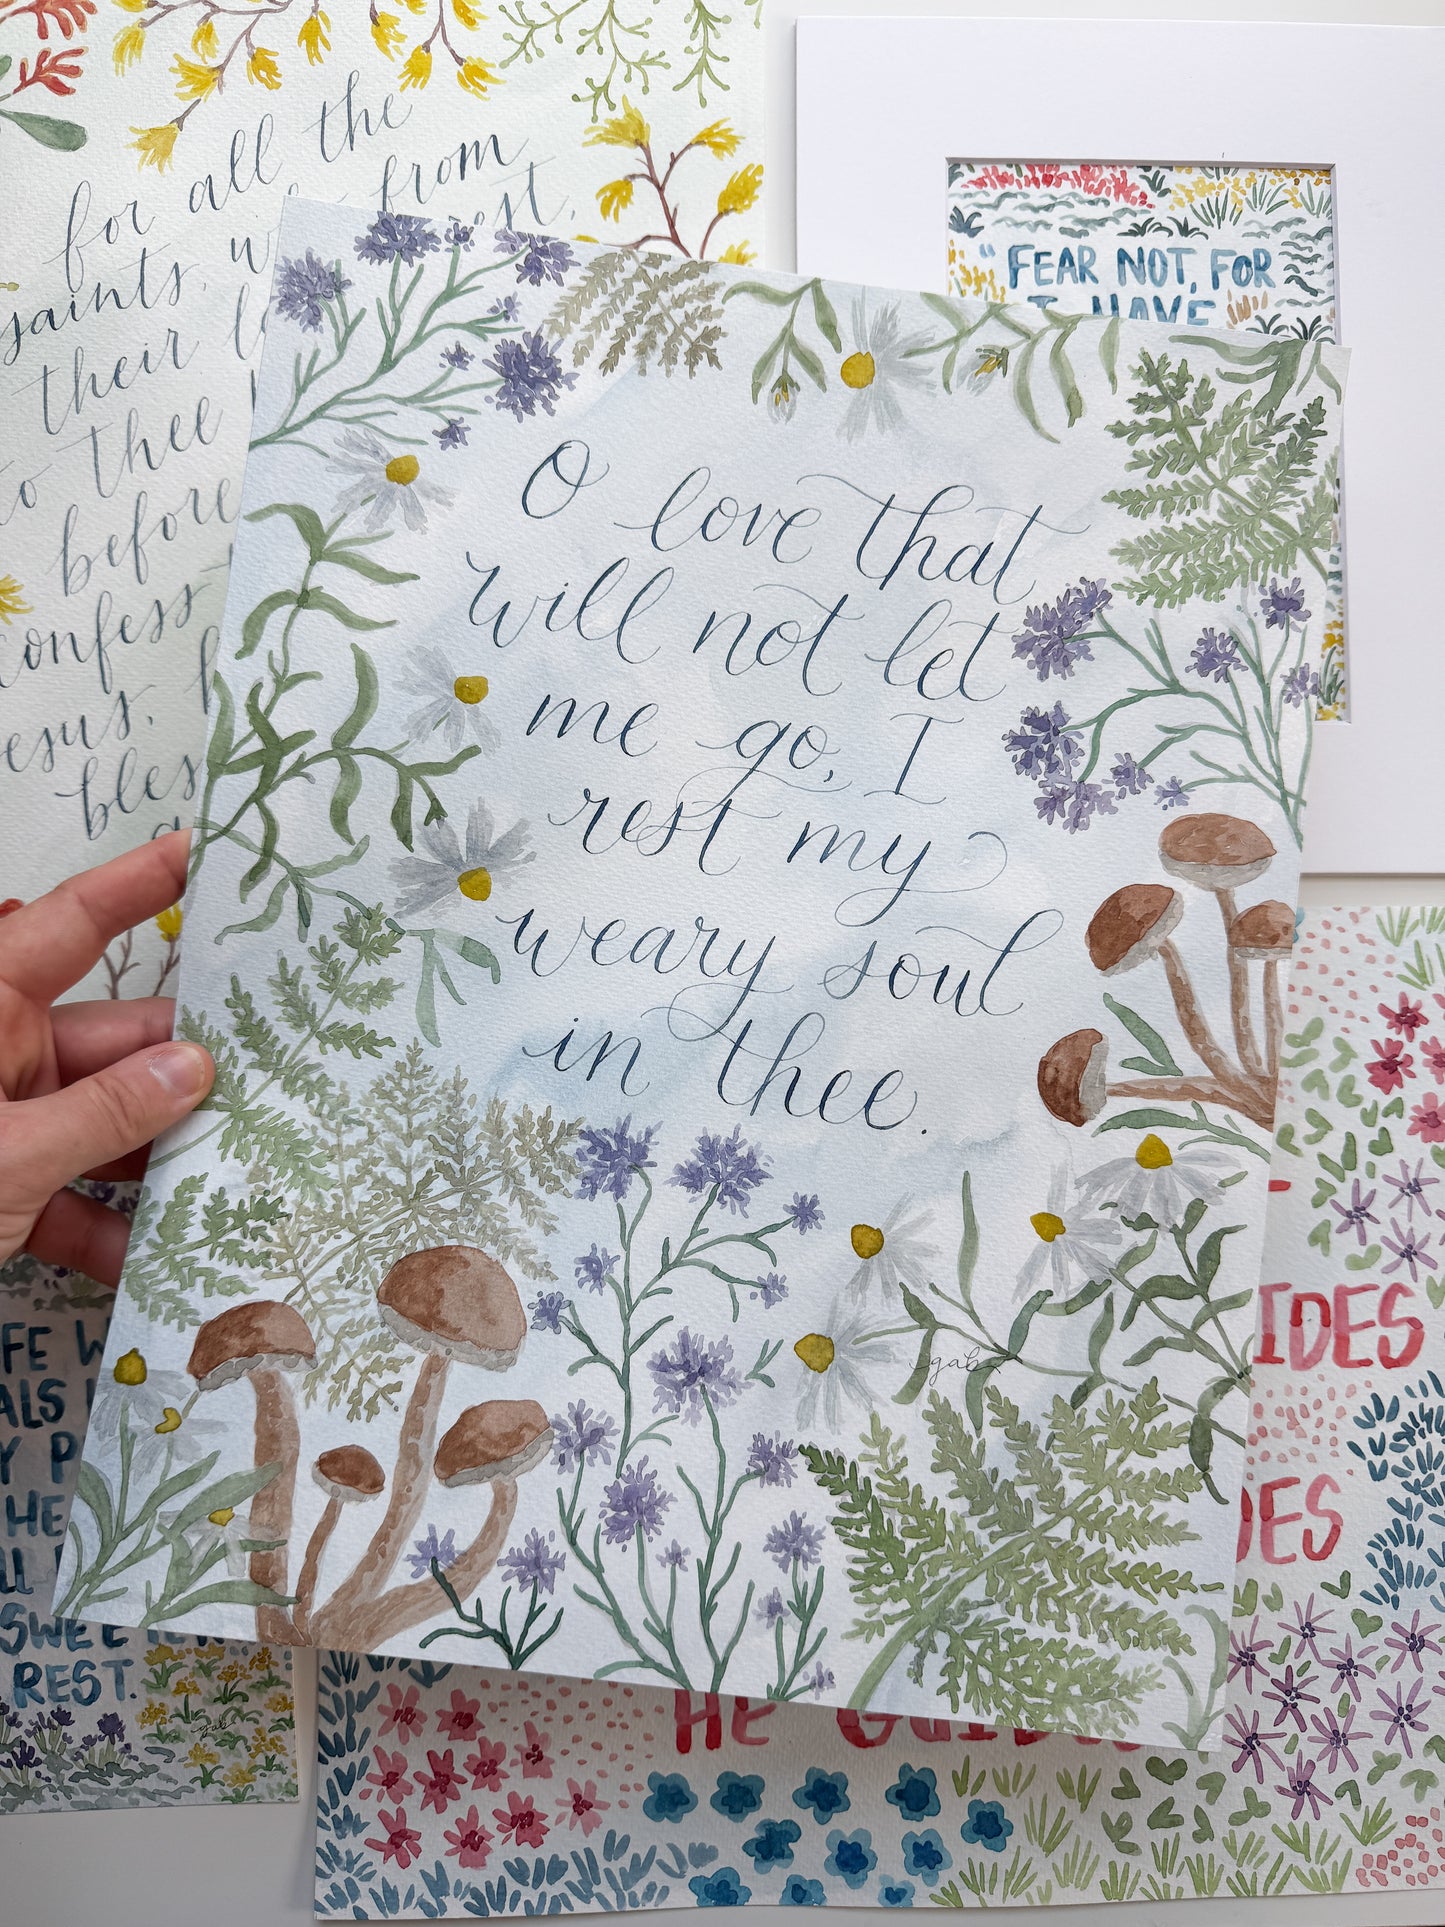 for all the
saints, from
their
to thee
before
confess
blest
"FEAR NOT, FOR
I HAVE
O love that
will not let
me go, I
rest my
weary soul
in thee.
gab
HE
SWEE
REST.
gab
IDES
DES
HE GUID